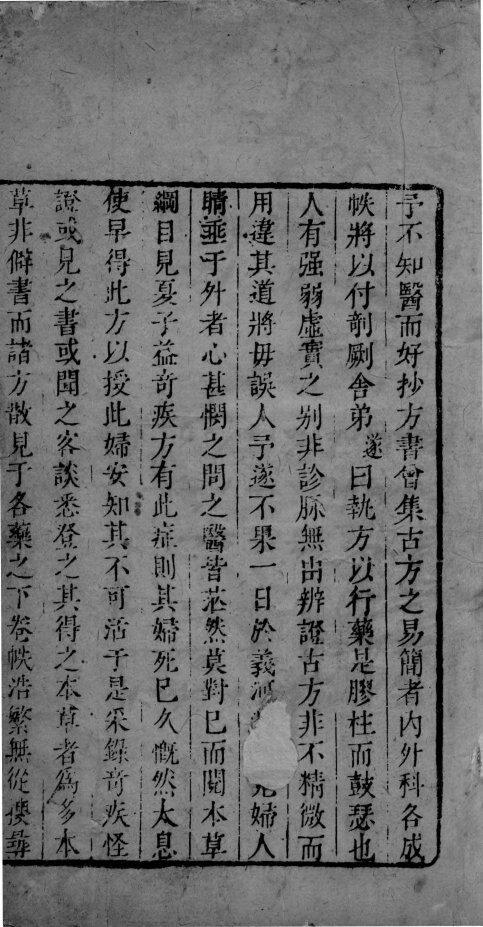 予不知醫而好抄方書曾集古方之易簡者内外科各成
帙將以付剞劂舍弟遂曰執方以行藥是膠柱而鼓瑟也
人有强弱虛實之别非診脉無由辨證古方非不精微而
用違其道將毋誤人予遂不果一日於義河見婦人
睛垂于外者心甚憫之問之醫皆茫然莫對已而閱本草
綱目見夏子益奇疾方有此症則其婦死已久慨然太息
使早得此方以授此婦安知其不可活于是采錄奇疾怪
證或見之書或聞之客談悉登之其得之本草者爲多本
草非僻書而諸方散見于各藥之下卷帙浩繁無從搜尋